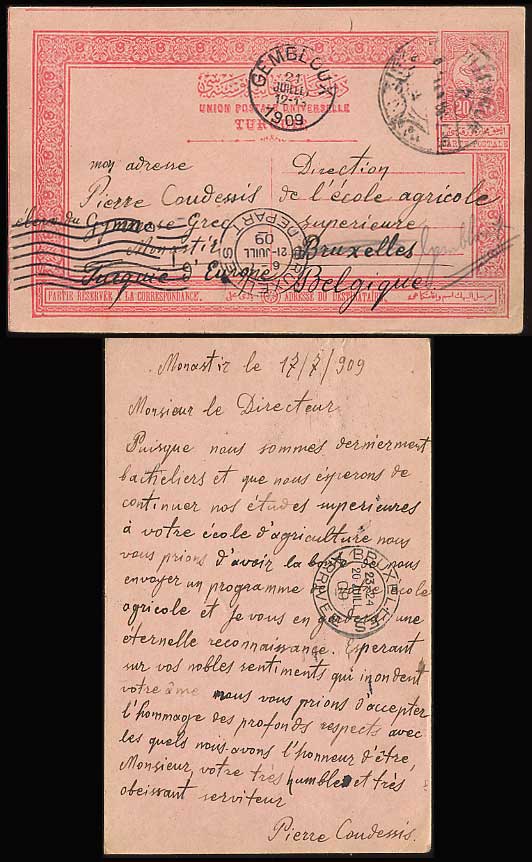 GEMBLOUX
21
JUILLET
12-13
1909
UNION POSTALE UNIVERSELLE
TURQUIE
20
CARTE POSTALE
mon adresse
Pierre Coudessis
élève du Gymnase Grec
Monastir
Turquie d'Europe
Direction
de l'école agricole
superieure
Bruxelles Gembloux
Belgique
BRUXELLES
DEPART
6
21-JUIL
09
PARTIE RÉSERVÉE A LA CORRESPONDANCE.
ADRESSE DU DESTINATAIRE
Monastir le 17/7/909
Monsieur le Directeur
Puisque nous sommes dernierment
bacheliers et que nous ésperons de
continuer nos études superieures
à votre école d'agriculture nous
vous prions d'avoir la bonté de nous
envoyer un programme de votre école
agricole et je vous en garderai une
éternelle reconnaissance. Esperant
sur vos nobles sentiments qui inondent
votre âme nous vous prions d'accepter
l'hommage des profonds respects avec
les quels nous avons l'honneur d'être,
Monsieur, votre très humble et très
obeissant serviteur
Pierre Coudessis.
BRUXELLES
23-24
20 JUIL
09
ARRIVEE